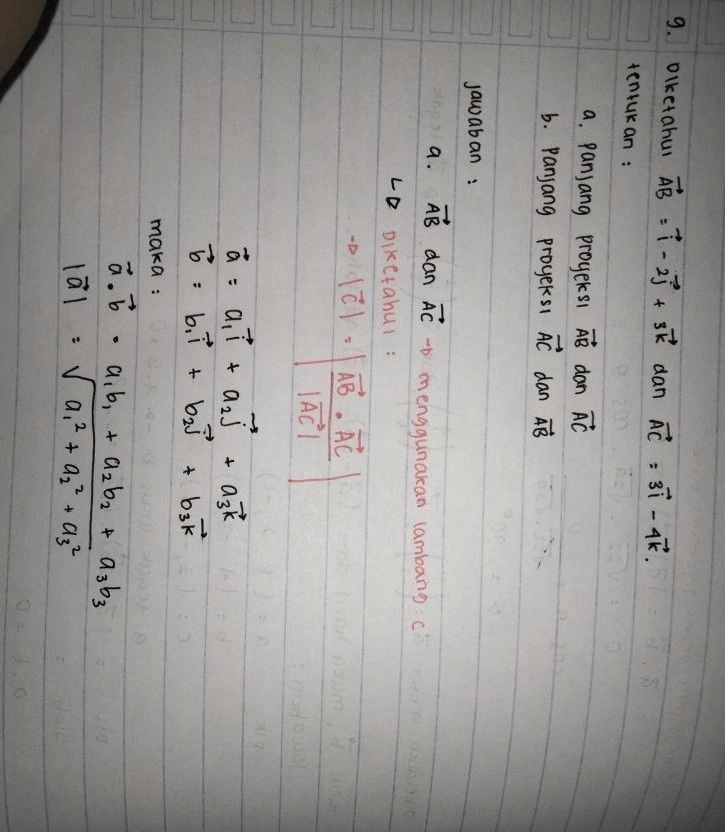 9. Diketahui AB⃗ = i⃗ - 2j⃗ + 3k⃗ dan AC⃗ = 3i⃗ - 4k⃗.
tentukan :
a. panjang proyeksi AB⃗ dan AC⃗
b. panjang proyeksi AC⃗ dan AB⃗
jawaban :
a. AB⃗ dan AC⃗ → menggunakan lambang : c
↳ Diketahui :
→ |C⃗| = |AB⃗ . AC⃗ / |AC⃗||
a⃗ = a₁i⃗ + a₂j⃗ + a₃k⃗
b⃗ = b₁i⃗ + b₂j⃗ + b₃k⃗
maka :
a⃗ . b⃗ = a₁b₁ + a₂b₂ + a₃b₃
|a⃗| = √(a₁² + a₂² + a₃²)